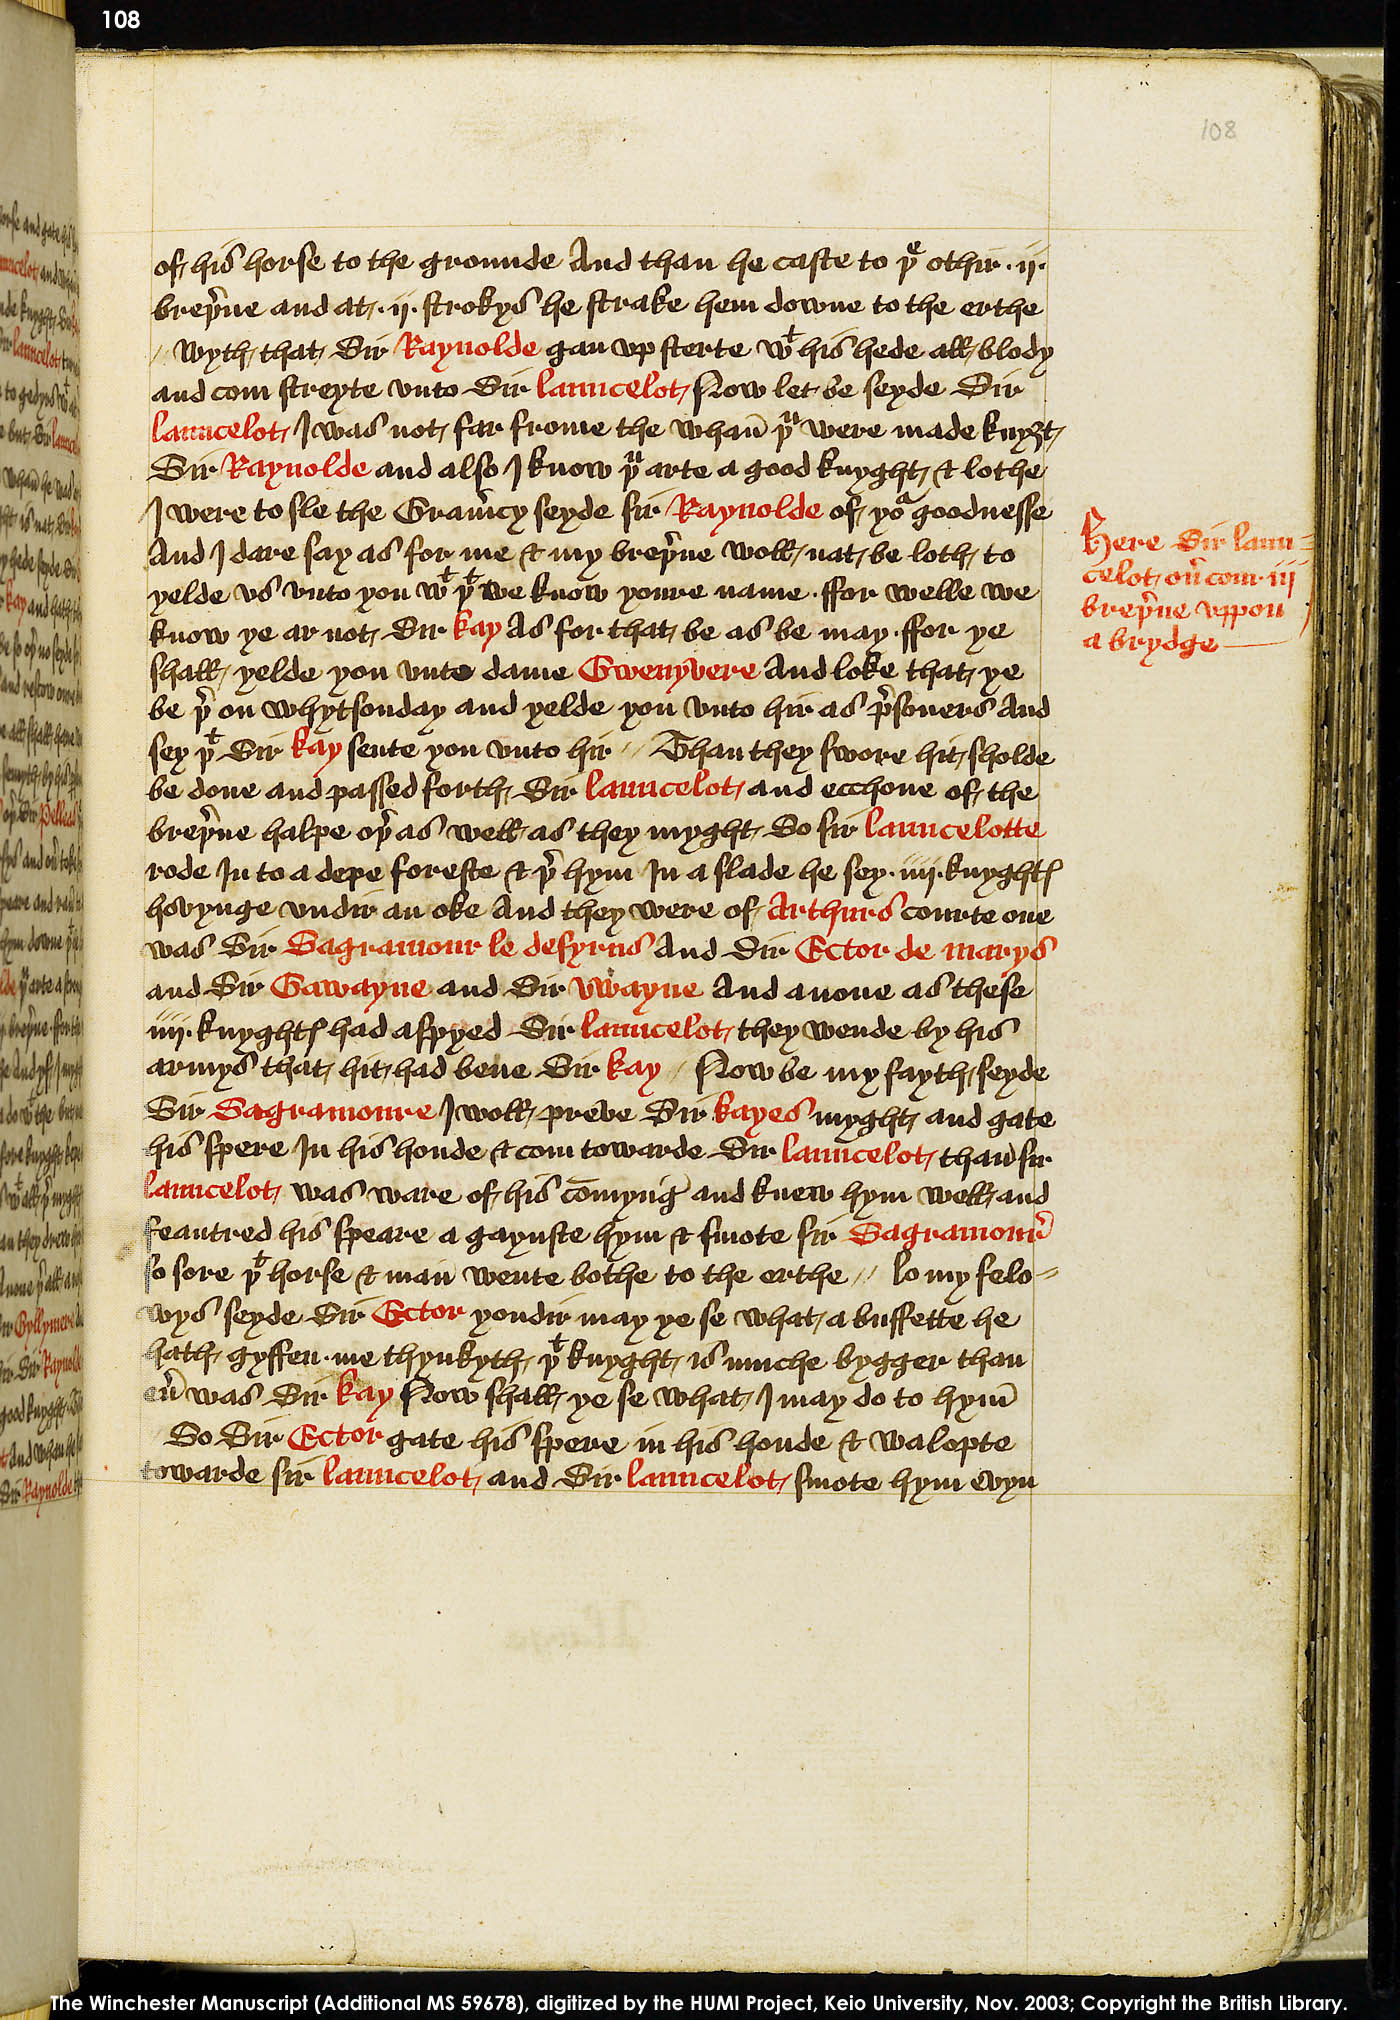 108
108
of his horse to the grounde And than he caste to þe othir .ij.
breþ'ne and at .ij. strokys he strake hem downe to the erthe
// Wyth that Sir Raynolde gan vp sterte wt his hede all blody
and com streyte vnto Sir launcelot Now let be seyde Sir
launcelot I was not far frome the whan̄ þu were made knyȝt
Sir Raynolde and also I know þu arte a good knyght & lothe
I were to sle the Gram̄cy seyde sir Raynolde of yor goodnesse
And I dare say as for me & my breþ'ne woll nat be loth to
yelde vs vnto you wt þt we know youre name . ffor welle we
know ye ar not Sir kay As for that be as be may . ffor ye
shall yelde you vnto dame Gwenyvere And loke that ye
be þ' on whytsonday and yelde you vnto hir as p'soners And
sey þt Sir kay sente you vnto hir // Than they swore hit sholde
be done and passed forth Sir launcelot and ecchone of the
breþ'ne halpe oþ' as well as they myght So sir launcelotte
rode In to a depe foreste & þ' hym In a slade he sey .iiij. knyghtꝭ
hovynge vndir an oke And they were of Arthurs courte one
was Sir Sagramour le desyrus And Sir Ector de marys
and Sir Gawayne and Sir vwayne And anone as these
iiij. knyghtꝭ had aspyed Sir launcelot they wende by his
armys that hit had bene Sir kay // Now be my fayth seyde
Sir Sagramoure I woll preve Sir kayes myght and gate
his spere In his honde & com towarde Sir launcelot than̄ sir
launcelot was ware of his cōmyng and knew hym well and
feautred his speare a gaynste hym & smote sir Sagramour'
so sore þt horse & man̄ wente bothe to the erthe // lo my felo=
wys seyde Sir Ector yondir may ye se what a buffette he
hath gyffen . me thynkyth þt knyght is muche bygger than
eu' was Sir kay Now shall ye se what I may do to hym̄
So Sir Ector gate his spere in his honde & walopte
towarde sir launcelot and Sir launcelot smote hym evyn
Here Sir laun=
celot ou'com iij
breþ'ne vppon
a brydge
The Winchester Manuscript (Additional MS 59678), digitized by the HUMI Project, Keio University, Nov. 2003; Copyright the British Library.